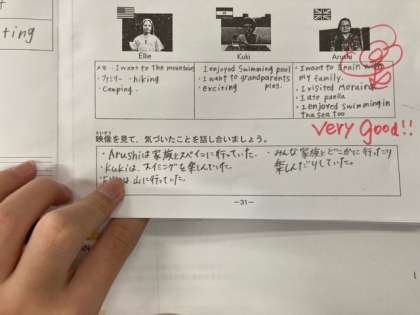 ting
Ellie
Kuki
Arushi
I want to the mountain
・hiking
Camping.
I enjoyed swimming pool
I want to grandparents
exciting
I want to Spain
my family.
I visited
I ate paella
I enjoyed swimming in
the sea too
very good!!
映像を見て、気づいたことを話し合いましょう。
・Arushiは家族とスペインに行っていた。
・Kukiは、スイミングを楽しんでいた
は山に行っていた。
・みんな家族とどこかに行ったり
楽しんだりしていた。
-31-